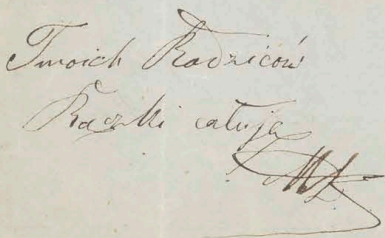 Twoich Rodziców
Rączki całuję